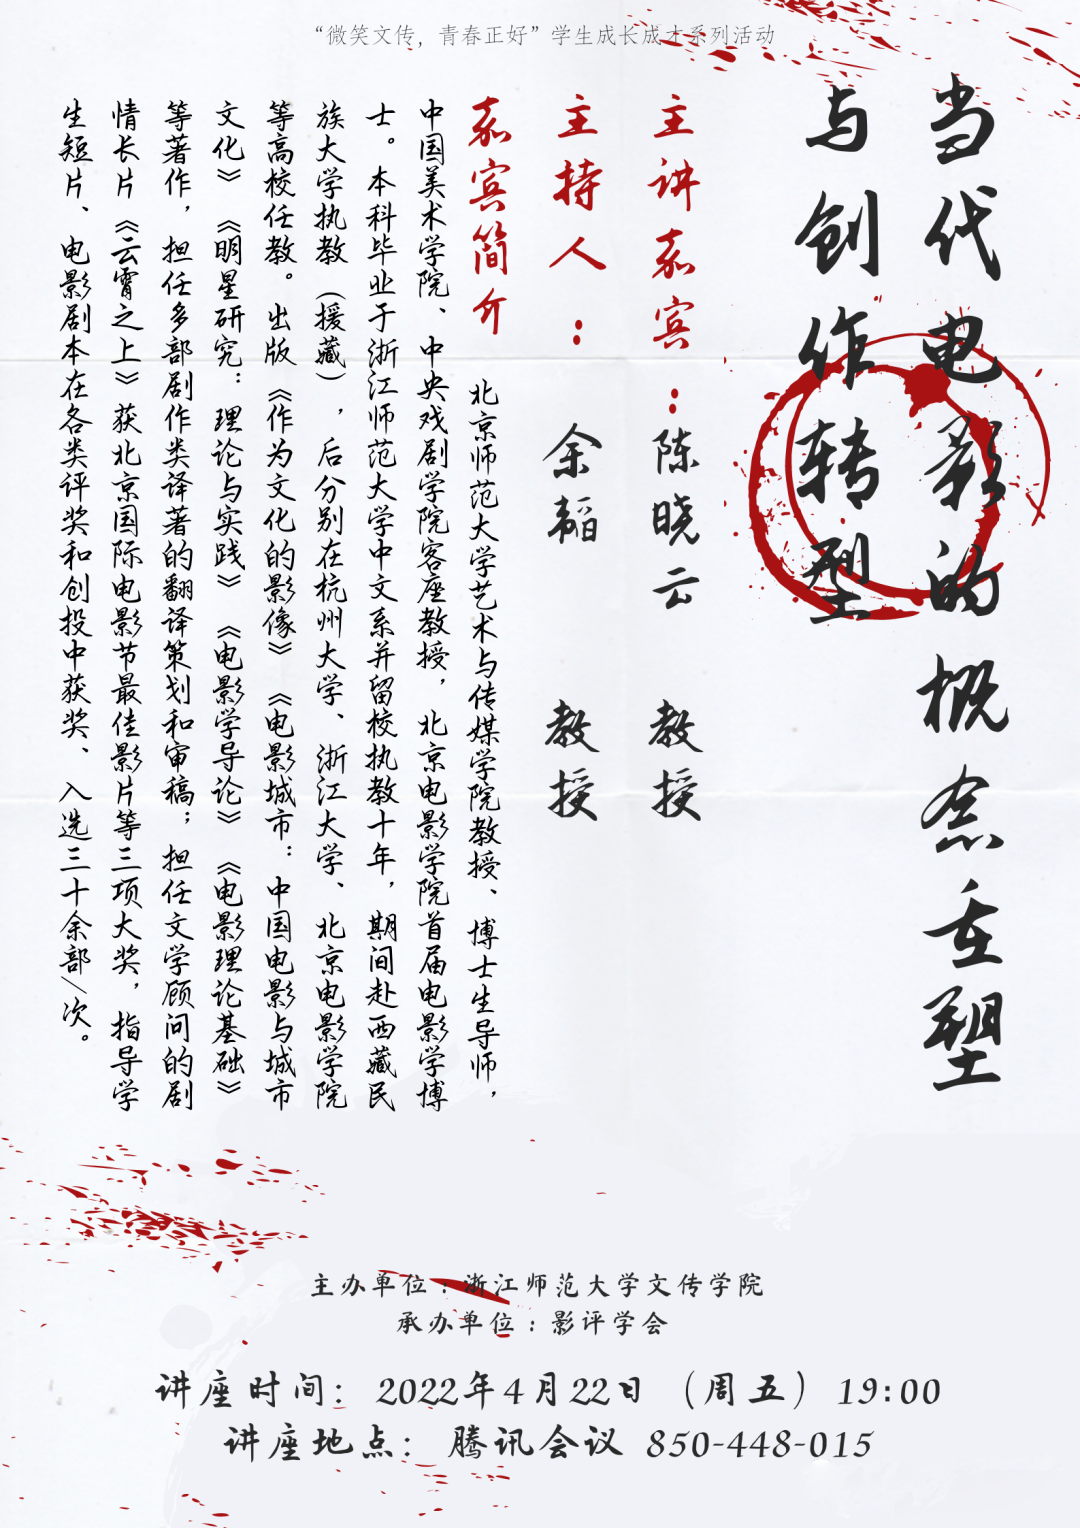 “微笑文传，青春正好”学生成长成才系列活动
当代电影的概念重塑
与创作转型
主讲嘉宾：陈晓云 教授
主持人：余韬 教授
嘉宾简介
北京师范大学艺术与传媒学院教授、博士生导师，
中国美术学院、中央戏剧学院客座教授，北京电影学院首届电影学博
士。本科毕业于浙江师范大学中文系并留校执教十年，期间赴西藏民
族大学执教（援藏），后分别在杭州大学、浙江大学、北京电影学院
等高校任教。出版《作为文化的影像》《电影城市：中国电影与城市
文化》《明星研究：理论与实践》《电影学导论》《电影理论基础》
等著作，担任多部剧作类译著的翻译策划和审稿；担任文学顾问的剧
情长片《云霄之上》获北京国际电影节最佳影片等三项大奖，指导学
生短片、电影剧本在各类评奖和创投中获奖、入选三十余部\次。
主办单位：浙江师范大学文传学院
承办单位：影评学会
讲座时间：2022年4月22日（周五）19:00
讲座地点：腾讯会议 850-448-015